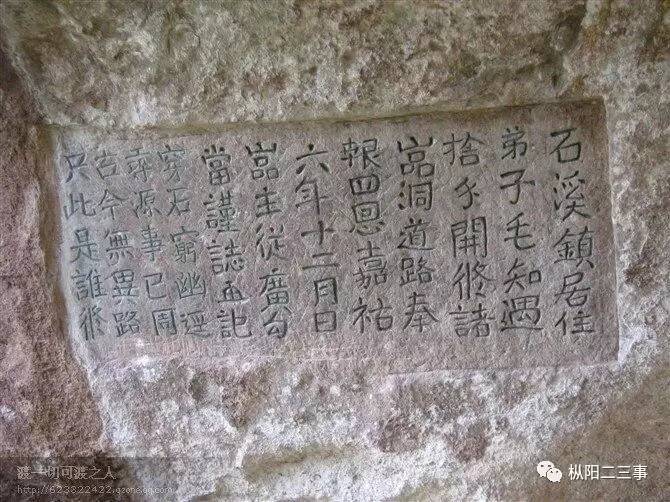 石溪鎮居住
弟子毛知遇
捨開修諸
嵓洞道路奉
報四恩嘉祐
六年十二月日
嵓主從廣勾
當謹誌記
穿石窮幽逕
尋源事已周
古今無異路
只此是誰修
渡一切可渡之人
http://623822422.qzone.qq.com
枞阳二三事